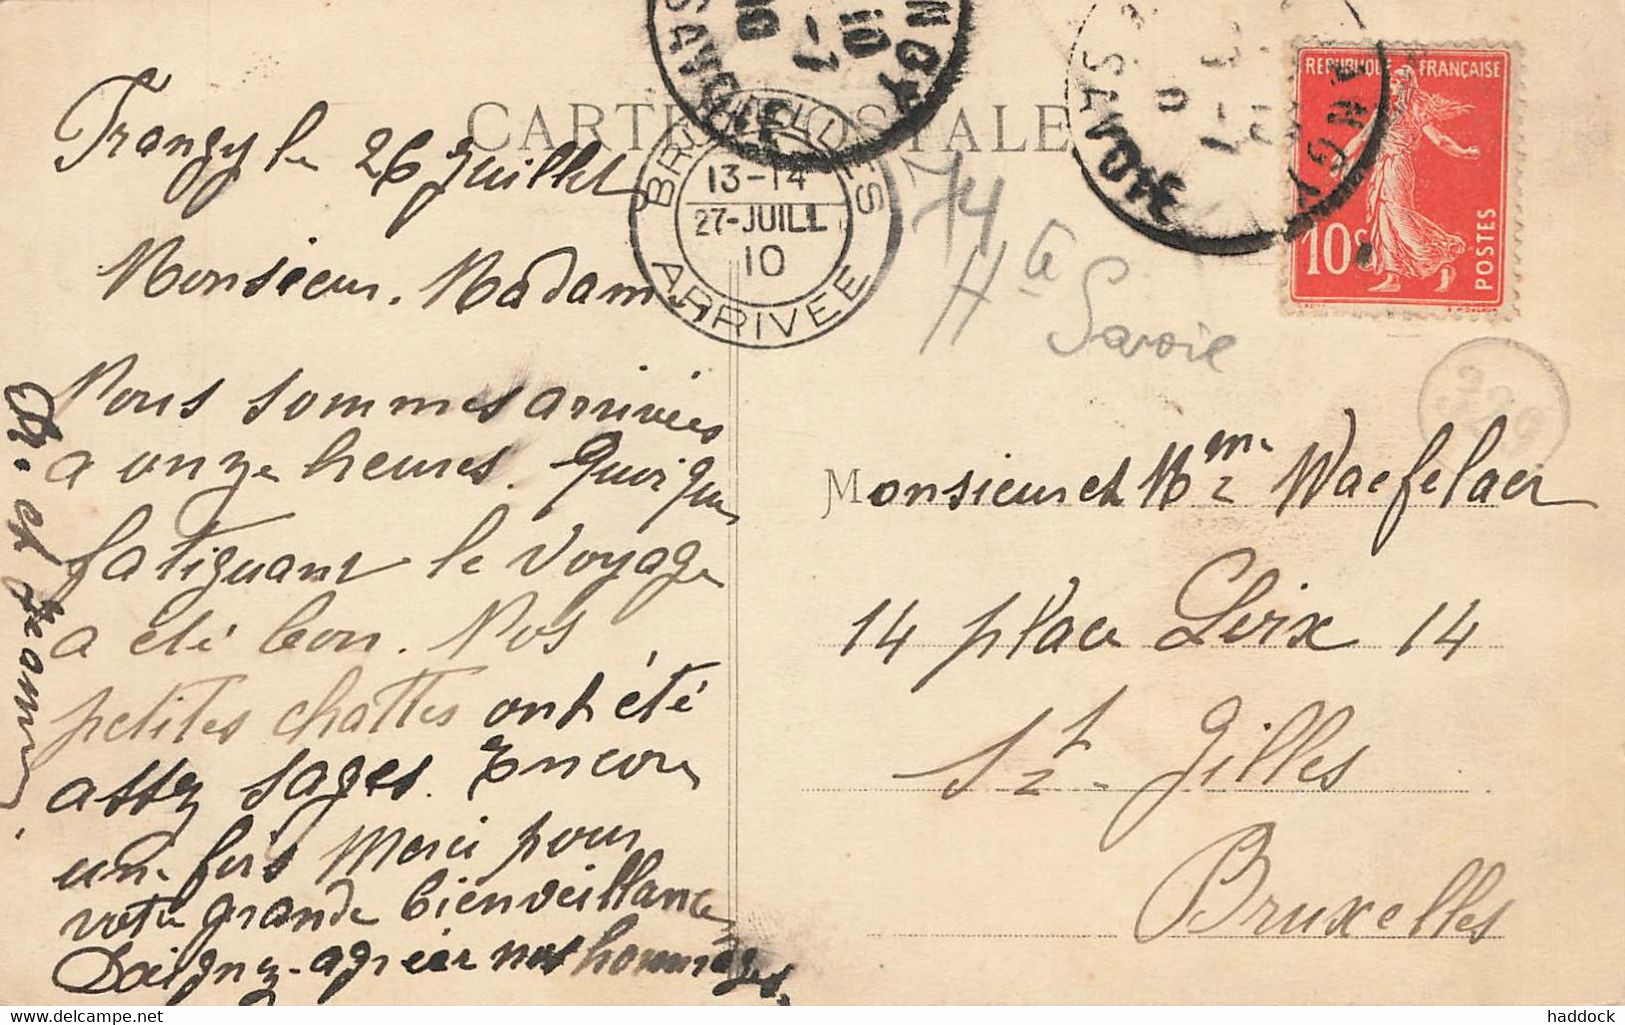 CARTE POSTALE
Frangy le 26 Juillet
Monsieur, Madame,
Nous sommes arrivées
a onze heures. Quoique
fatiguant le voyage
a été bon. Nos
petites chattes ont été
assez sages. Encore
une fois Merci pour
votre grande bienveillance
Daignez agréer nos hommages.
BRUXELLES
13-14
27-JUILL
10
ARRIVEE
SAVOIE
10
FRANGY
SAVOIE
74
Hte
Savoie
REPUBLIQUE FRANÇAISE
10c
POSTES
329
Monsieur et Mme Waefelaer
14 place Loix 14
St. Gilles
Bruxelles
www.delcampe.net
haddock